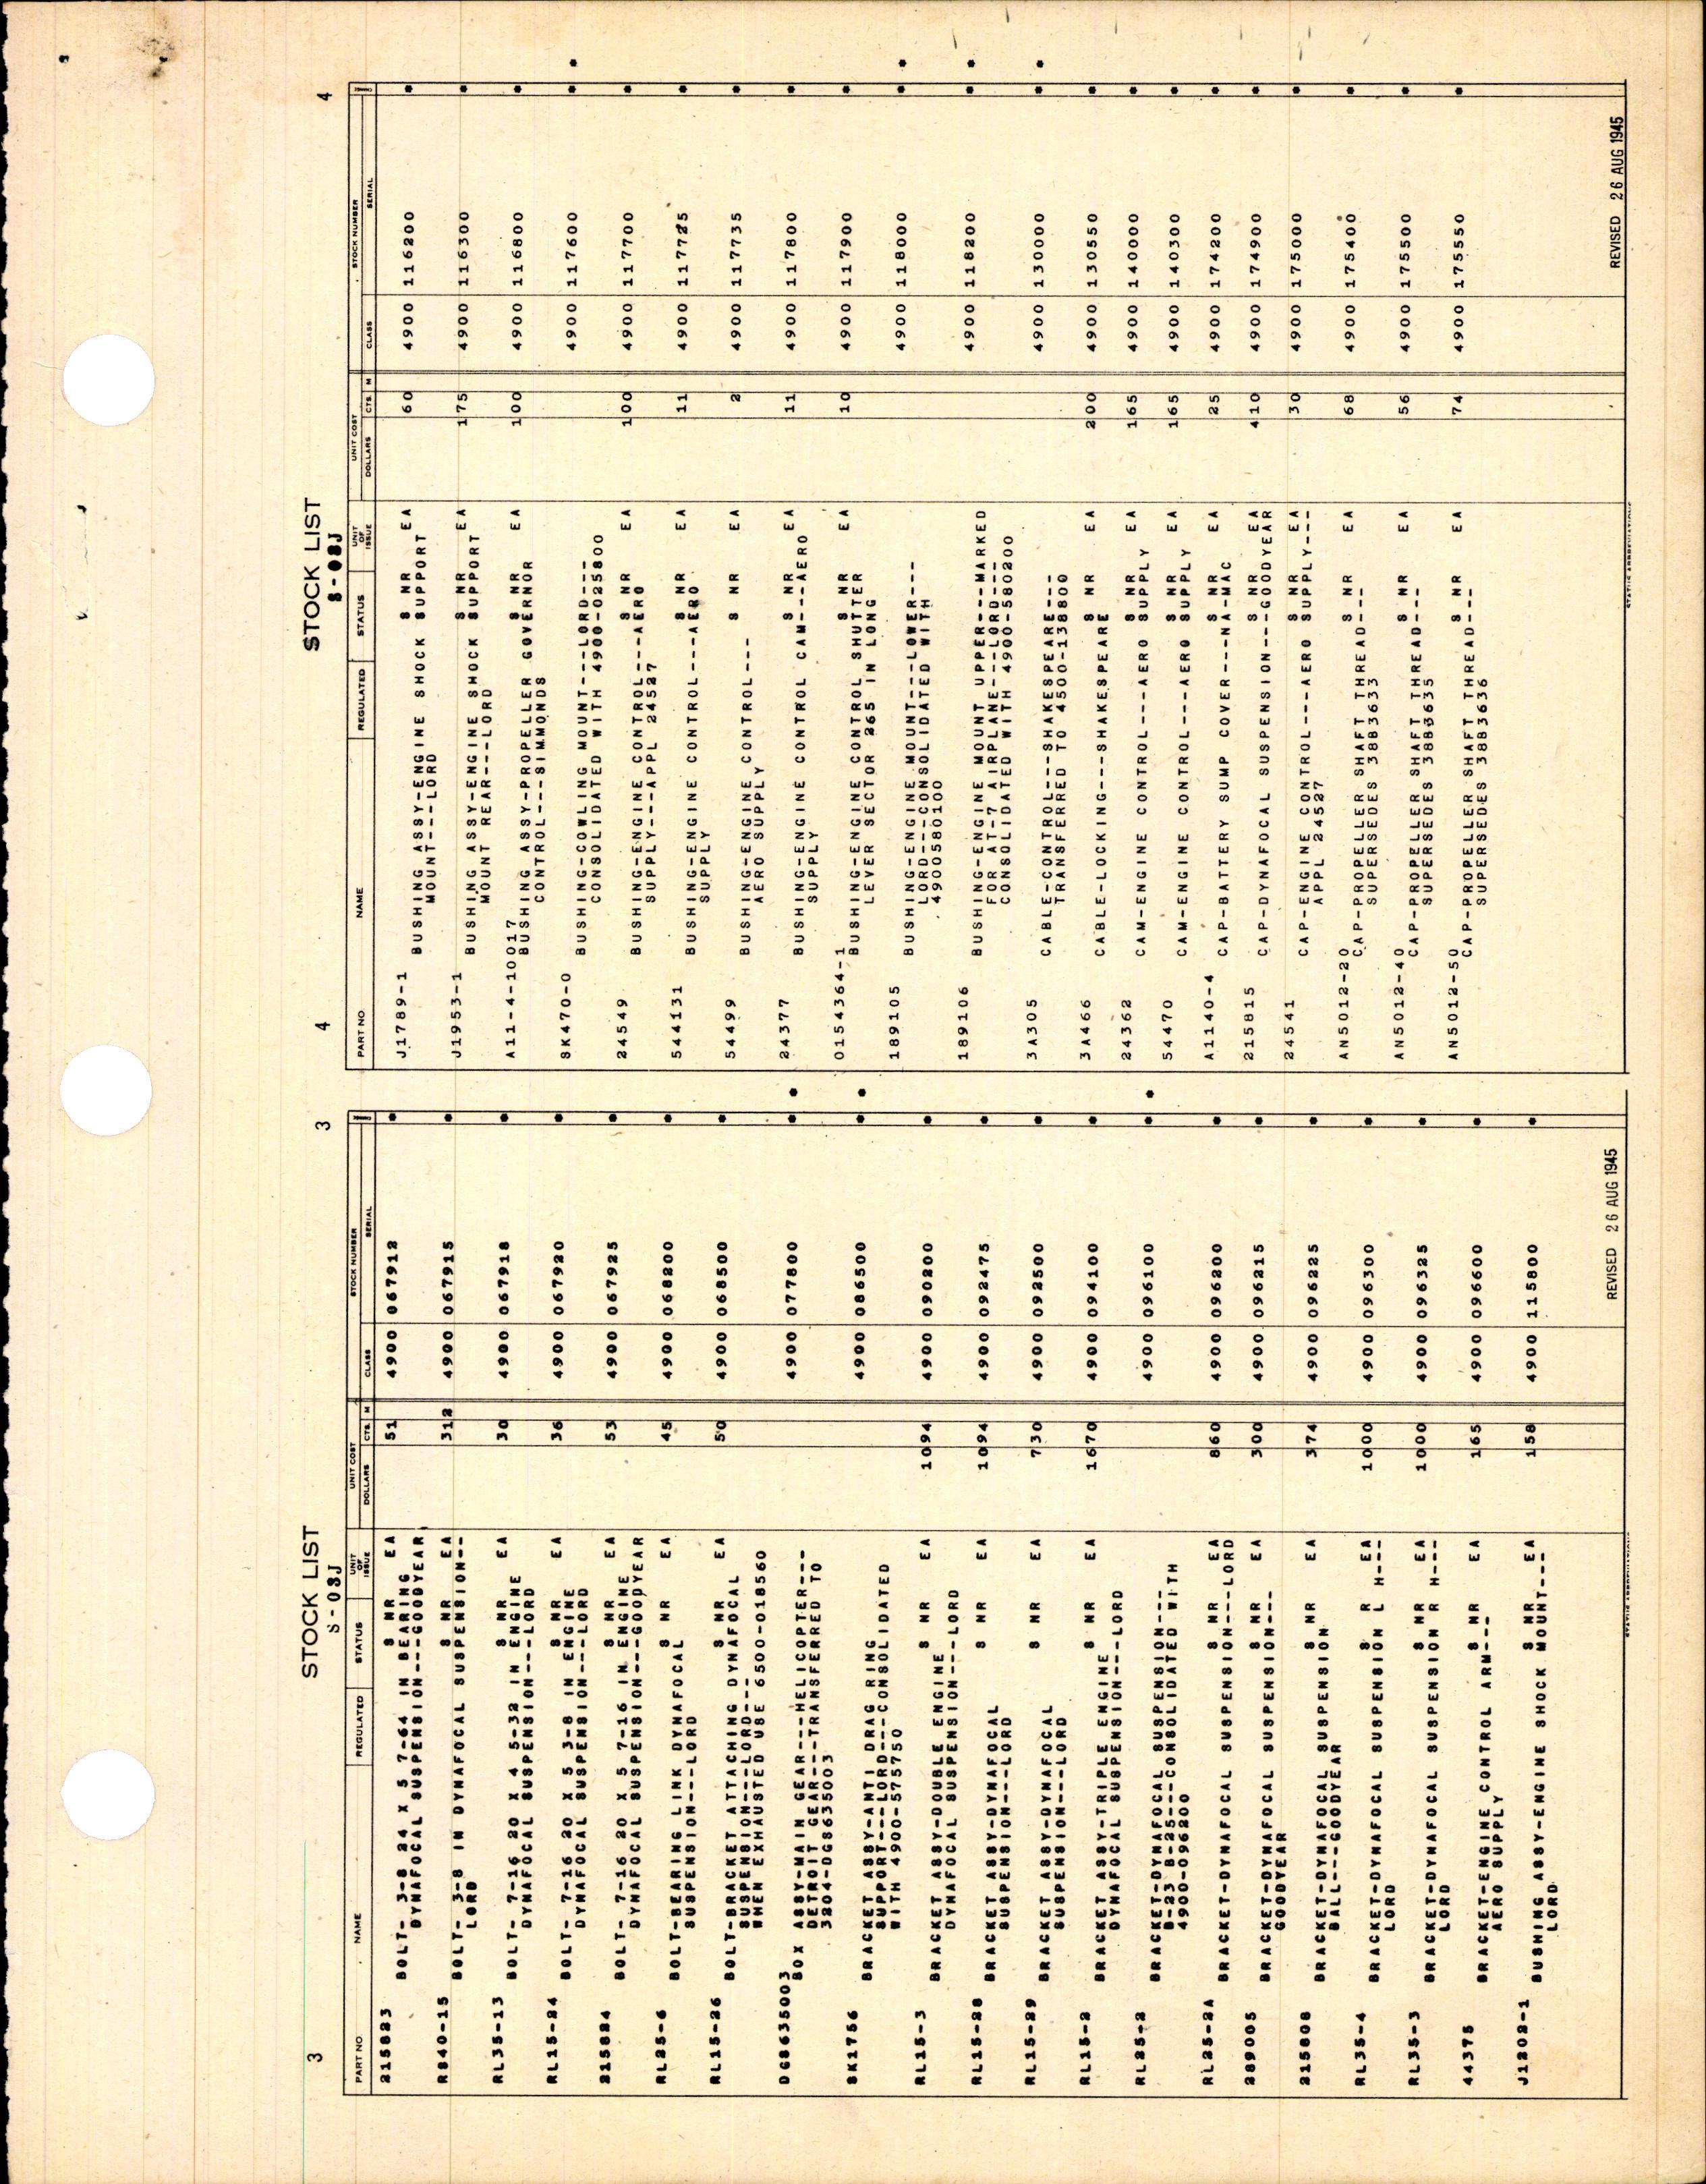 3 STOCK LIST 3
S-08J
PART NO NAME REGULATED STATUS UNIT OF ISSUE UNIT COST DOLLARS CTS. M STOCK NUMBER CLASS SERIAL
215823 BOLT- 3-8 24 X 5 7-64 IN BEARING S NR EA 51 4900 067912
DYNAFOCAL SUSPENSION---GOODYEAR
R840-15 BOLT- 3-8 IN DYNAFOCAL SUSPENSION-- S NR EA 312 4900 067915
LORD
RL35-13 BOLT- 7-16 20 X 4 5-32 IN ENGINE S NR EA 30 4900 067918
DYNAFOCAL SUSPENSION---LORD
RL15-24 BOLT- 7-16 20 X 5 3-8 IN ENGINE S NR EA 36 4900 067920
DYNAFOCAL SUSPENSION---LORD
215824 BOLT- 7-16 20 X 5 7-16 IN ENGINE S NR EA 53 4900 067925
DYNAFOCAL SUSPENSION---GOODYEAR
RL25-6 BOLT-BEARING LINK DYNAFOCAL S NR EA 45 4900 068200
SUSPENSION---LORD
RL15-26 BOLT-BRACKET ATTACHING DYNAFOCAL S NR EA 50 4900 068500
SUSPENSION---LORD---
WHEN EXHAUSTED USE 6500-018560
DG8635003 BOX ASSY-MAIN GEAR---HELICOPTER--- 4900 077800
DETROIT GEAR---TRANSFERRED TO
3204-DG8635003
SK1756 BRACKET ASSY-ANTI DRAG RING 4900 086500
SUPPORT---LORD---CONSOLIDATED
WITH 4900-575750
RL15-3 BRACKET ASSY-DOUBLE ENGINE S NR EA 1094 4900 090200
DYNAFOCAL SUSPENSION---LORD
RL15-28 BRACKET ASSY-DYNAFOCAL S NR EA 1094 4900 092475
SUSPENSION---LORD
RL15-29 BRACKET ASSY-DYNAFOCAL S NR EA 730 4900 092500
SUSPENSION---LORD
RL15-2 BRACKET ASSY-TRIPLE ENGINE S NR EA 1670 4900 094100
DYNAFOCAL SUSPENSION---LORD
RL25-2 BRACKET-DYNAFOCAL SUSPENSION--- 4900 096100
B-23 B-25---CONSOLIDATED WITH
4900-096200
RL25-2A BRACKET-DYNAFOCAL SUSPENSION---LORD S NR EA 860 4900 096200
289005 BRACKET-DYNAFOCAL SUSPENSION--- S NR EA 300 4900 096215
GOODYEAR
215808 BRACKET-DYNAFOCAL SUSPENSION S NR EA 374 4900 096225
BALL---GOODYEAR
RL35-4 BRACKET-DYNAFOCAL SUSPENSION L H--- S R EA 1000 4900 096300
LORD
RL35-3 BRACKET-DYNAFOCAL SUSPENSION R H--- S NR EA 1000 4900 096325
LORD
44375 BRACKET-ENGINE CONTROL ARM--- S NR EA 165 4900 096600
AERO SUPPLY
J1202-1 BUSHING ASSY-ENGINE SHOCK MOUNT--- S NR EA 158 4900 115800
LORD
REVISED 26 AUG 1945
4 STOCK LIST 4
S-08J
PART NO NAME REGULATED STATUS UNIT OF ISSUE UNIT COST DOLLARS CTS. M STOCK NUMBER CLASS SERIAL
J1789-1 BUSHING ASSY-ENGINE SHOCK SUPPORT S NR EA 60 4900 116200
MOUNT---LORD
J1953-1 BUSHING ASSY-ENGINE SHOCK SUPPORT S NR EA 175 4900 116300
MOUNT REAR---LORD
A11-4-10017 BUSHING ASSY-PROPELLER GOVERNOR S NR EA 100 4900 116800
CONTROL---SIMMONDS
SK470-0 BUSHING-COWLING MOUNT---LORD--- 4900 117600
CONSOLIDATED WITH 4900-025800
24549 BUSHING-ENGINE CONTROL---AERO S NR EA 100 4900 117700
SUPPLY---APPL 24527
544131 BUSHING-ENGINE CONTROL---AERO S NR EA 11 4900 117725
SUPPLY
54499 BUSHING-ENGINE CONTROL--- S NR EA 2 4900 117735
AERO SUPPLY
24377 BUSHING-ENGINE CONTROL CAM---AERO S NR EA 11 4900 117800
SUPPLY
0154364-1 BUSHING-ENGINE CONTROL SHUTTER S NR EA 10 4900 117900
LEVER SECTOR 265 IN LONG
189105 BUSHING-ENGINE MOUNT---LOWER--- 4900 118000
LORD---CONSOLIDATED WITH
4900580100
189106 BUSHING-ENGINE MOUNT UPPER---MARKED 4900 118200
FOR AT-7 AIRPLANE---LORD---
CONSOLIDATED WITH 4900-580200
3A305 CABLE-CONTROL---SHAKESPEARE--- 4900 130000
TRANSFERRED TO 4500-138800
3A466 CABLE-LOCKING---SHAKESPEARE S NR EA 200 4900 130550
24362 CAM-ENGINE CONTROL---AERO SUPPLY S NR EA 165 4900 140000
54470 CAM-ENGINE CONTROL---AERO SUPPLY S NR EA 165 4900 140300
A1140-4 CAP-BATTERY SUMP COVER---NA-MAC S NR EA 25 4900 174200
215815 CAP-DYNAFOCAL SUSPENSION---GOODYEAR S NR EA 410 4900 174900
24541 CAP-ENGINE CONTROL---AERO SUPPLY--- S NR EA 30 4900 175000
APPL 24527
AN5012-20 CAP-PROPELLER SHAFT THREAD--- S NR EA 68 4900 175400
SUPERSEDES 38B3633
AN5012-40 CAP-PROPELLER SHAFT THREAD--- S NR EA 56 4900 175500
SUPERSEDES 38B3635
AN5012-50 CAP-PROPELLER SHAFT THREAD--- S NR EA 74 4900 175550
SUPERSEDES 38B3636
REVISED 26 AUG 1945